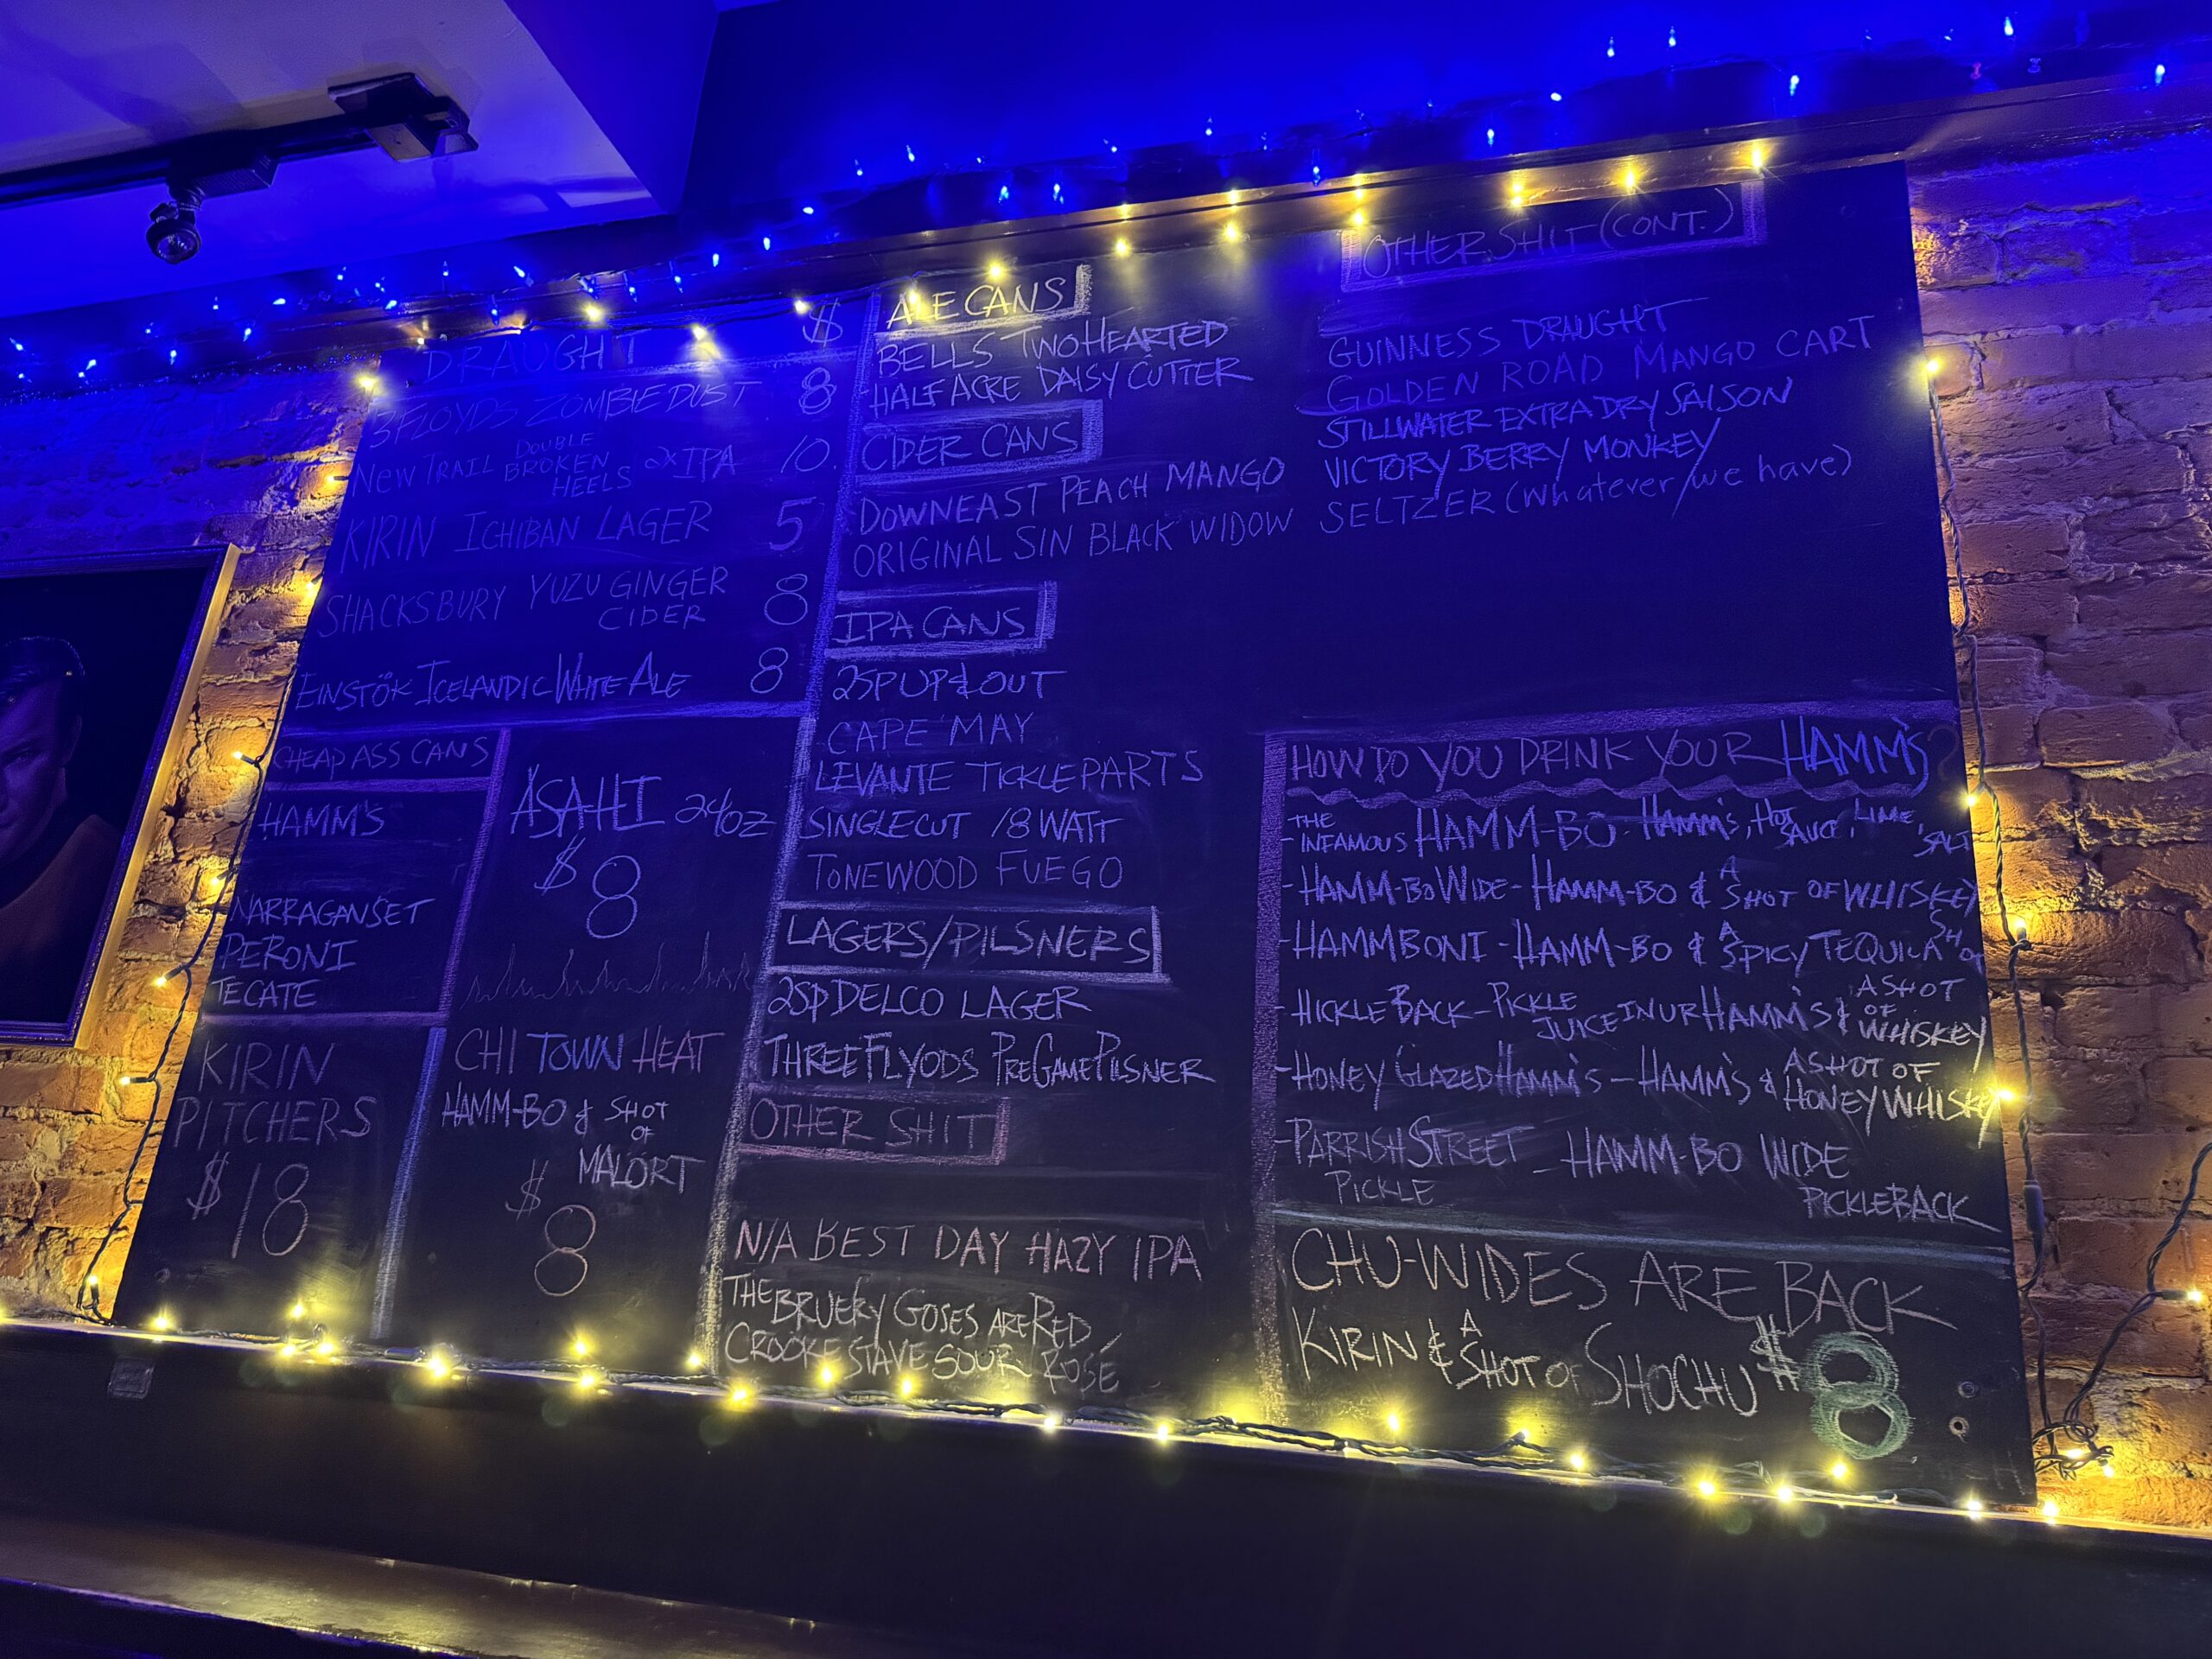 DRAUGHT $
3FLOYDS ZOMBIE DUST 8
NEW TRAIL DOUBLE BROKEN HEELS 2XIPA 10
KIRIN ICHIBAN LAGER 5
SHACKSBURY YUZU GINGER CIDER 8
EINSTÖK ICELANDIC WHITE ALE 8
CHEAP ASS CANS
HAMM'S
NARRAGANSET
PERONI
TECATE
KIRIN
PITCHERS
$18
ASAHI 24OZ
$8
CHI TOWN HEAT
HAMM-BO & SHOT
OF
MALORT
$
8
ALE CANS
BELLS TWO HEARTED
HALF ACRE DAISY CUTTER
CIDER CANS
DOWNEAST PEACH MANGO
ORIGINAL SIN BLACK WIDOW
IPA CANS
2SP UP & OUT
CAPE MAY
LEVANTE TICKLE PARTS
SINGLECUT 18 WATT
TONEWOOD FUEGO
LAGERS/PILSNERS
2SP DELCO LAGER
THREE FLYODS PREGAME PILSNER
OTHER SHIT
N/A BEST DAY HAZY IPA
THE BRUERY GOSES ARE RED
CROOKE STAVE SOUR ROSÉ
OTHER SHIT (CONT.)
GUINNESS DRAUGHT
GOLDEN ROAD MANGO CART
STILLWATER EXTRA DRY SAISON
VICTORY BERRY MONKEY
SELTZER (whatever we have)
HOW DO YOU DRINK YOUR HAMM'S?
-THE INFAMOUS HAMM-BO - HAMM'S, HOT SAUCE, LIME, SALT
-HAMM-BO WIDE - HAMM-BO & A SHOT OF WHISKEY
-HAMMBONI - HAMM-BO & A SPICY TEQUILA SHOT
-HICKLE BACK - PICKLE JUICE IN UR HAMM'S & A SHOT OF WHISKEY
-HONEY GLAZED HAMM'S - HAMM'S & A SHOT OF HONEY WHISKEY
-PARRISH STREET PICKLE - HAMM-BO WIDE PICKLEBACK
CHU-WIDES ARE BACK
KIRIN & A SHOT OF SHOCHU $8